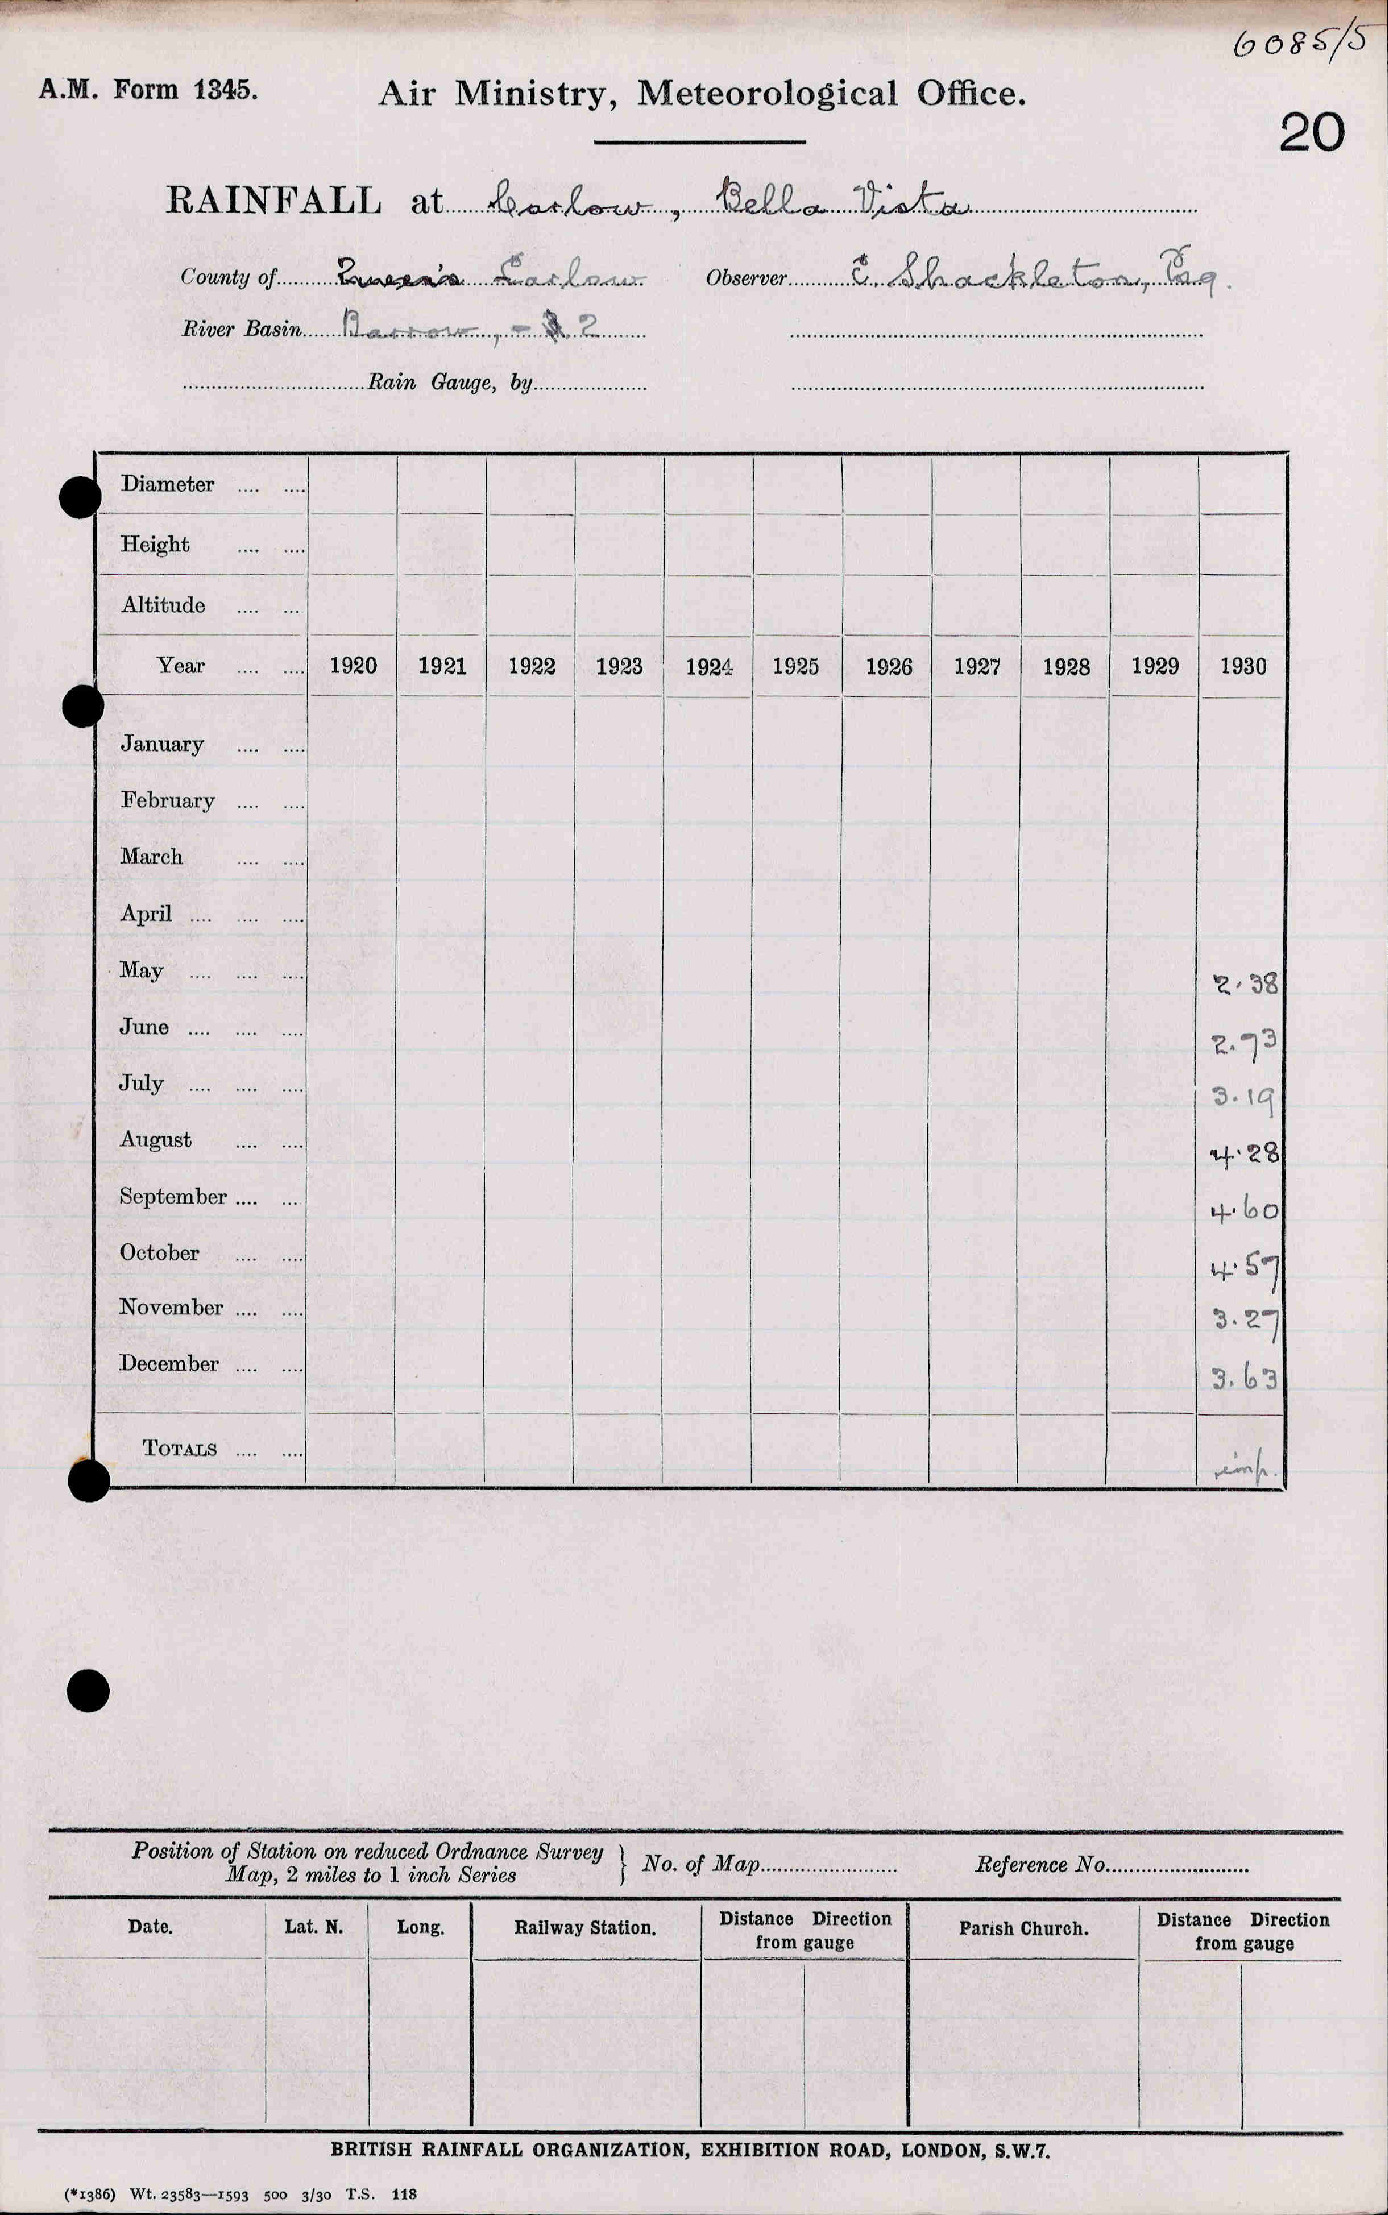 6085/5
A.M. Form 1345.
Air Ministry, Meteorological Office.
20
RAINFALL at Carlow, Bella Vista
County of Queen's Carlow Observer E. Shackleton, Esq.
River Basin Barrow, - 2
Rain Gauge, by
Diameter
Height
Altitude
Year 1920 1921 1922 1923 1924 1925 1926 1927 1928 1929 1930
January
February
March
April
May 2.38
June 2.73
July 3.19
August 4.28
September 4.60
October 4.57
November 3.27
December 3.63
TOTALS imp.
Position of Station on reduced Ordnance Survey
Map, 2 miles to 1 inch Series } No. of Map Reference No.
Date. Lat. N. Long. Railway Station. Distance Direction from gauge Parish Church. Distance Direction from gauge
BRITISH RAINFALL ORGANIZATION, EXHIBITION ROAD, LONDON, S.W.7.
(*1386) Wt. 23583—1593 500 3/30 T.S. 118